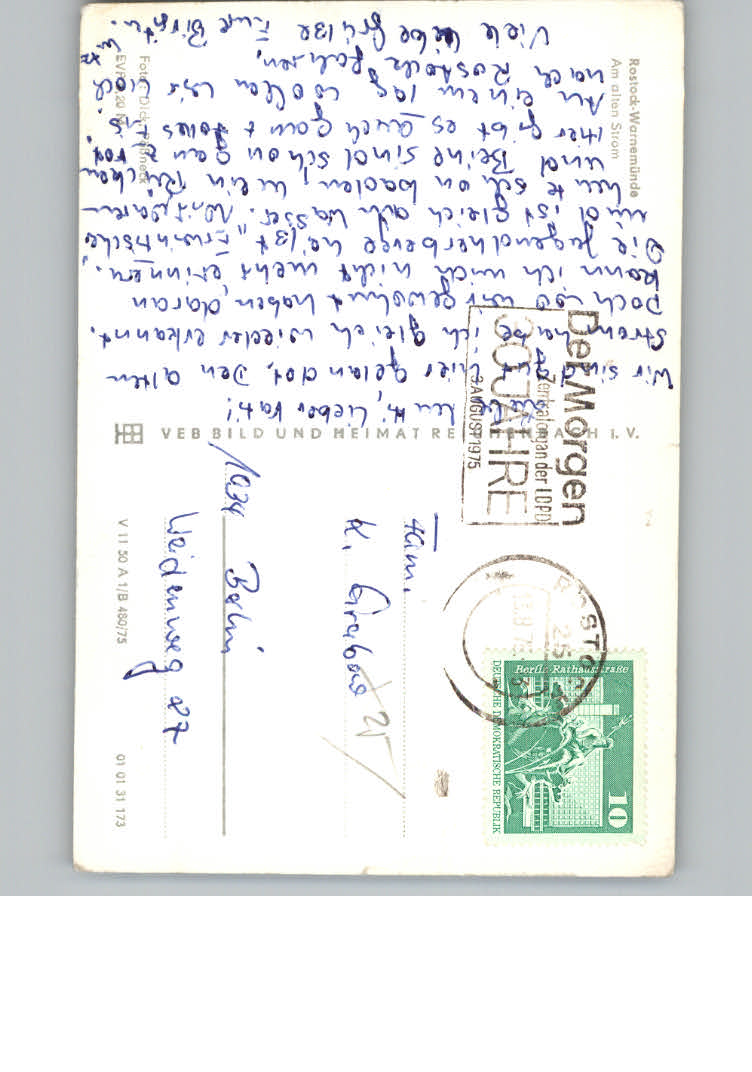 Rostock-Warnemünde
Am alten Strom
Liebe Mutti, Lieber Vati!
Wir sind gut hier gelandet. Den alten
Strom habe ich gleich wieder erkannt.
Doch wo wir gewohnt haben, daran
kann ich mich nicht mehr erinnern.
Die Jugendherberge hier ist
und ist gleich am Wasser. Wir waren
heute schon baden, mein Rücken
und Beine sind schon ganz rot.
Hier gibt es auch ganz tolles Eis.
An einem Tag wollen wir noch
nach Rostock fahren.
Viele liebe Grüße Eure Birgit
Foto: Dick, Pößneck
EVP 0,20 M
VEB BILD UND HEIMAT REICHENBACH I. V.
V 11 50 A 1/B 480/75
01 01 31 173
Der Morgen
Zentralorgan der LDPD
30 JAHRE
3. AUGUST 1975
ROSTOCK
25
Berlin, Rathausstraße
DEUTSCHE DEMOKRATISCHE REPUBLIK
10
Fam.
K. Grabow
25
1034 Berlin
Weidenweg 27